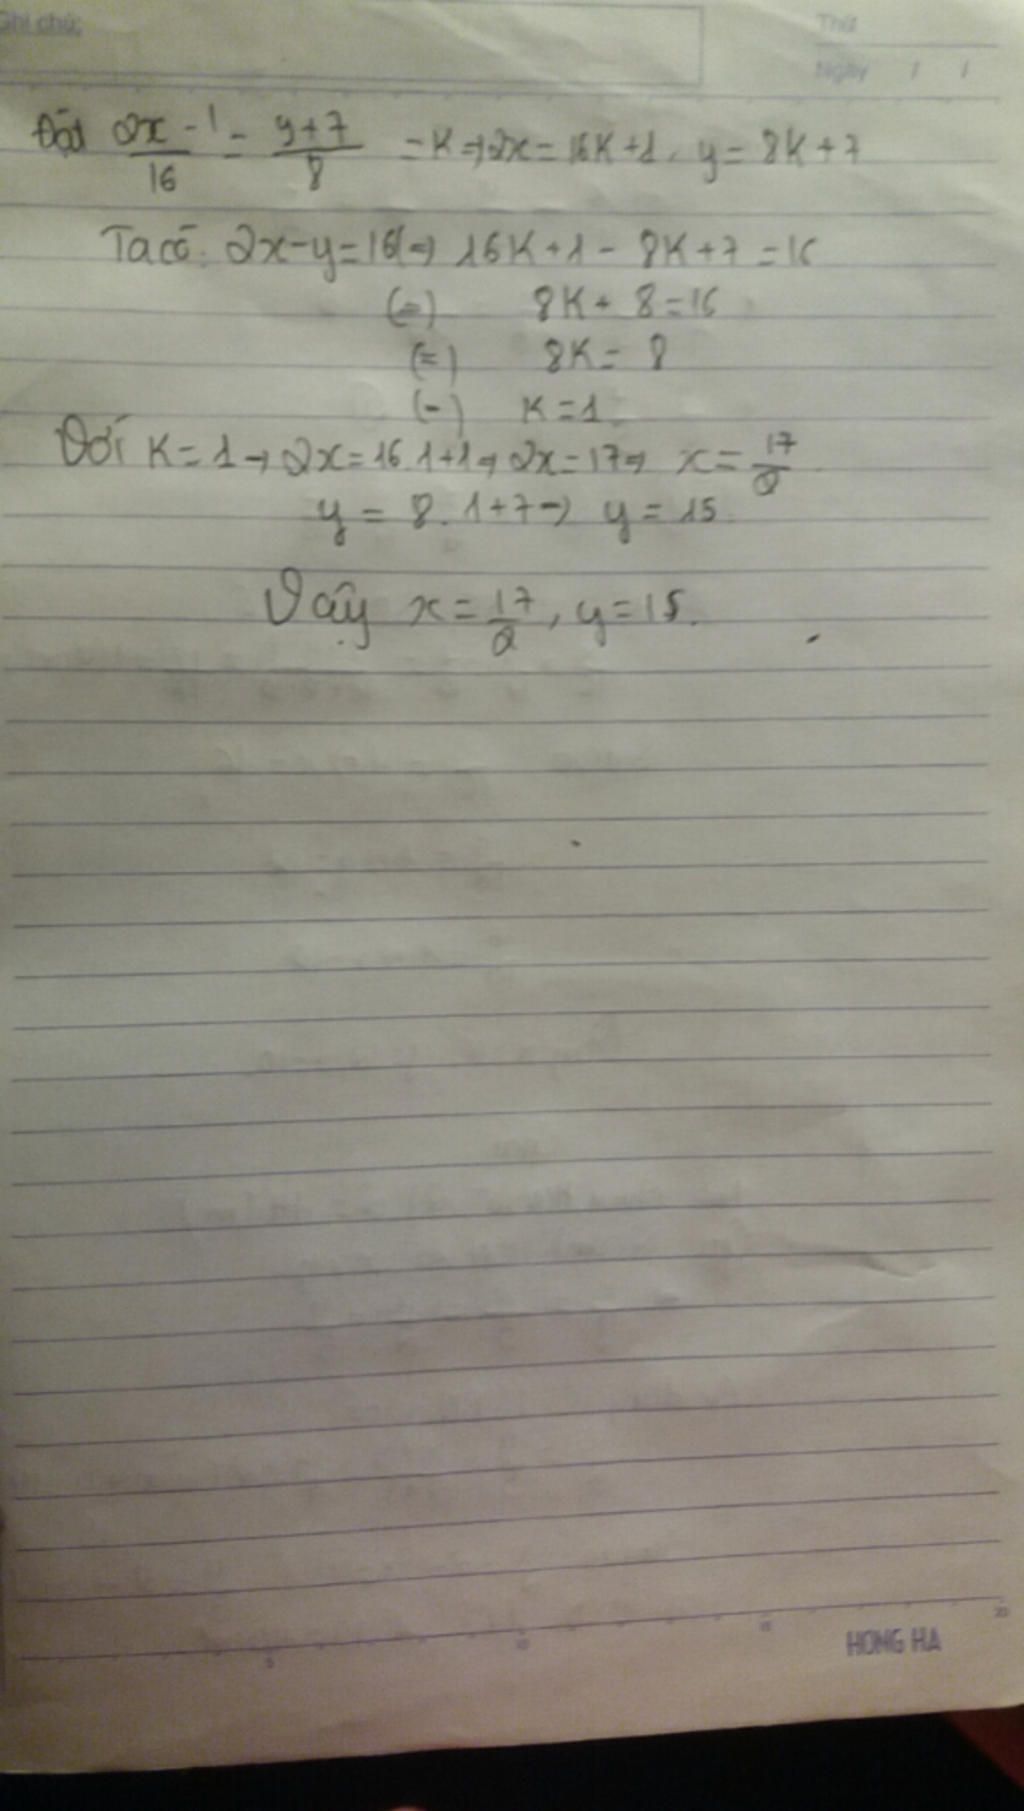 Ghi chú:
Thứ
Ngày / /
Đặt 2x - 1/16 = y+7/8 = K → 2x = 16K+1, y = 8K+7
Ta có: 2x-y=16 → 16K+1 - 8K+7 = 16
(=) 8K + 8 = 16
(=) 8K = 8
(=) K = 1
Với K = 1 → 2x = 16.1+1 → 2x = 17 → x = 17/2
y = 8.1+7 → y = 15
Vậy x = 17/2, y = 15.
5 10 15 20
HONG HA